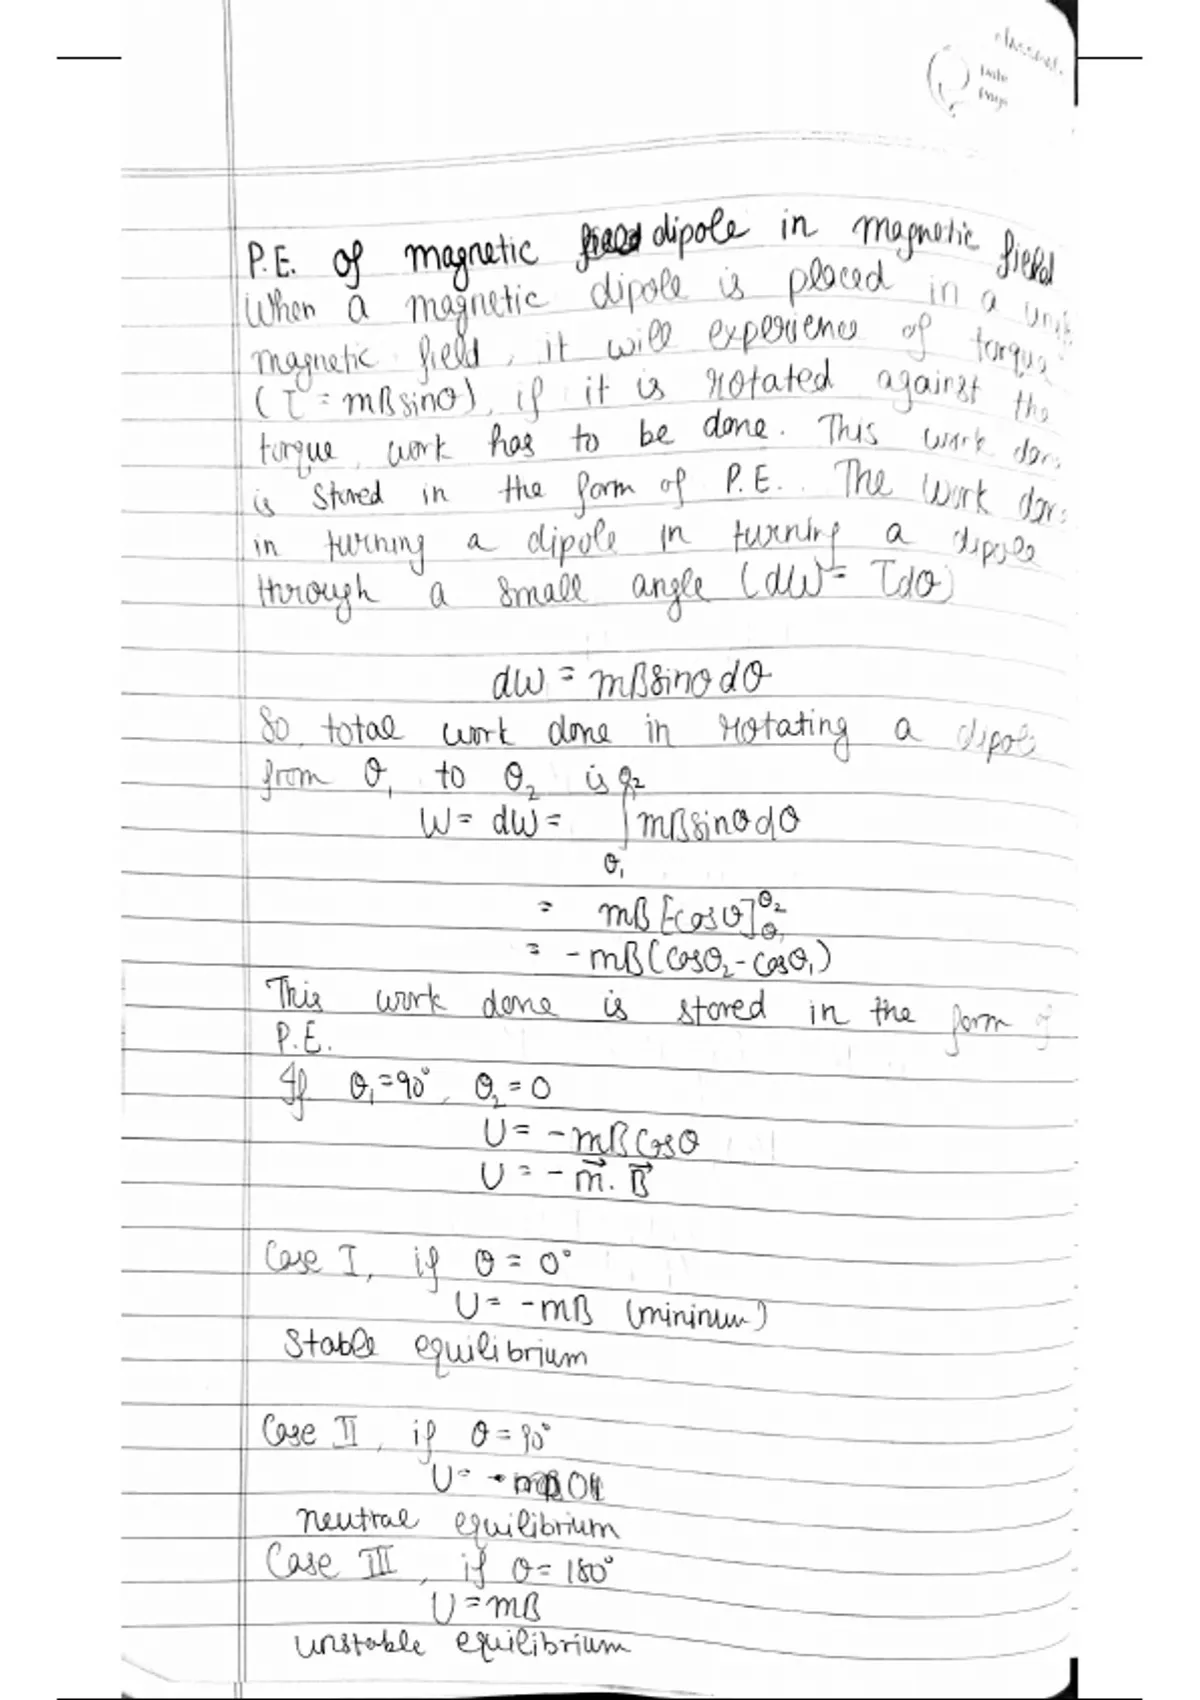 classmate
Date
Page
P.E. of magnetic dipole in magnetic field
When a magnetic dipole is placed in a unif
magnetic field, it will experience of torque
(τ = mBsinθ), if it is rotated against the
torque, work has to be done. This work done
is stored in the form of P.E. . The work done
in turning a dipole in turning a dipole
through a small angle (dW = τdθ)
dW = mBsinθdθ
So, total work done in rotating a dipole
from θ₁ to θ₂ is θ₂
W = dW = ∫ mBsinθdθ
θ₁
= mB[cosθ]θ₂θ₁
= -mB(cosθ₂ - cosθ₁)
This work done is stored in the form of
P.E.
If θ₁ = 90°, θ₂ = 0
U = -mBcosθ
U = -m⃗. B⃗
Case I, if θ = 0°
U = -mB (mininum)
Stable equilibrium
Case II, if θ = 90°
U =
neutral equilibrium
Case III, if θ = 180°
U = mB
unstable equilibrium